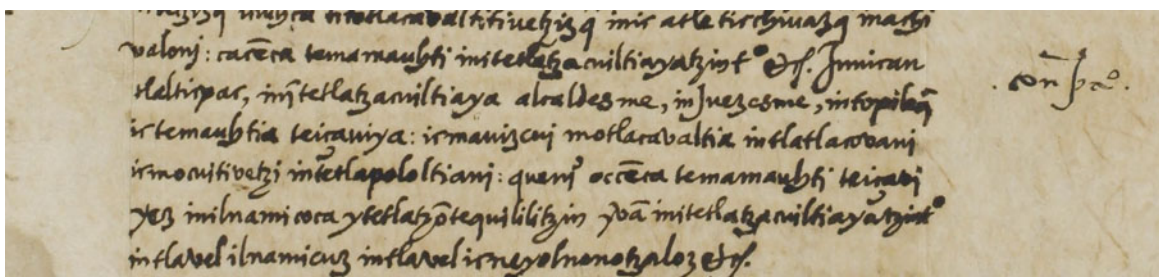 titotlacavaltitivetzizq̄ inic atle ticchivazq̄ machi
valoni: cacēca temamauhti initetlatzacuiltiayatzint° &c. Innican
tlalticpac, inītetlatzacuiltiaya alcaldesme, in Juezesme, intopileq̄
ictemauhtia teiçaviya: icmavizcui motlacavaltia intlatlacovani
icmocuitivetzi intētlapololtiani: quenī occēca temamauhti teiçavi
yez inilnamicoca ytetlatzōtequililitzin yvā initetlatzacuiltiayatzint°
intlavel ilnamicuz intlavel icneyolnonotzaloz &c.